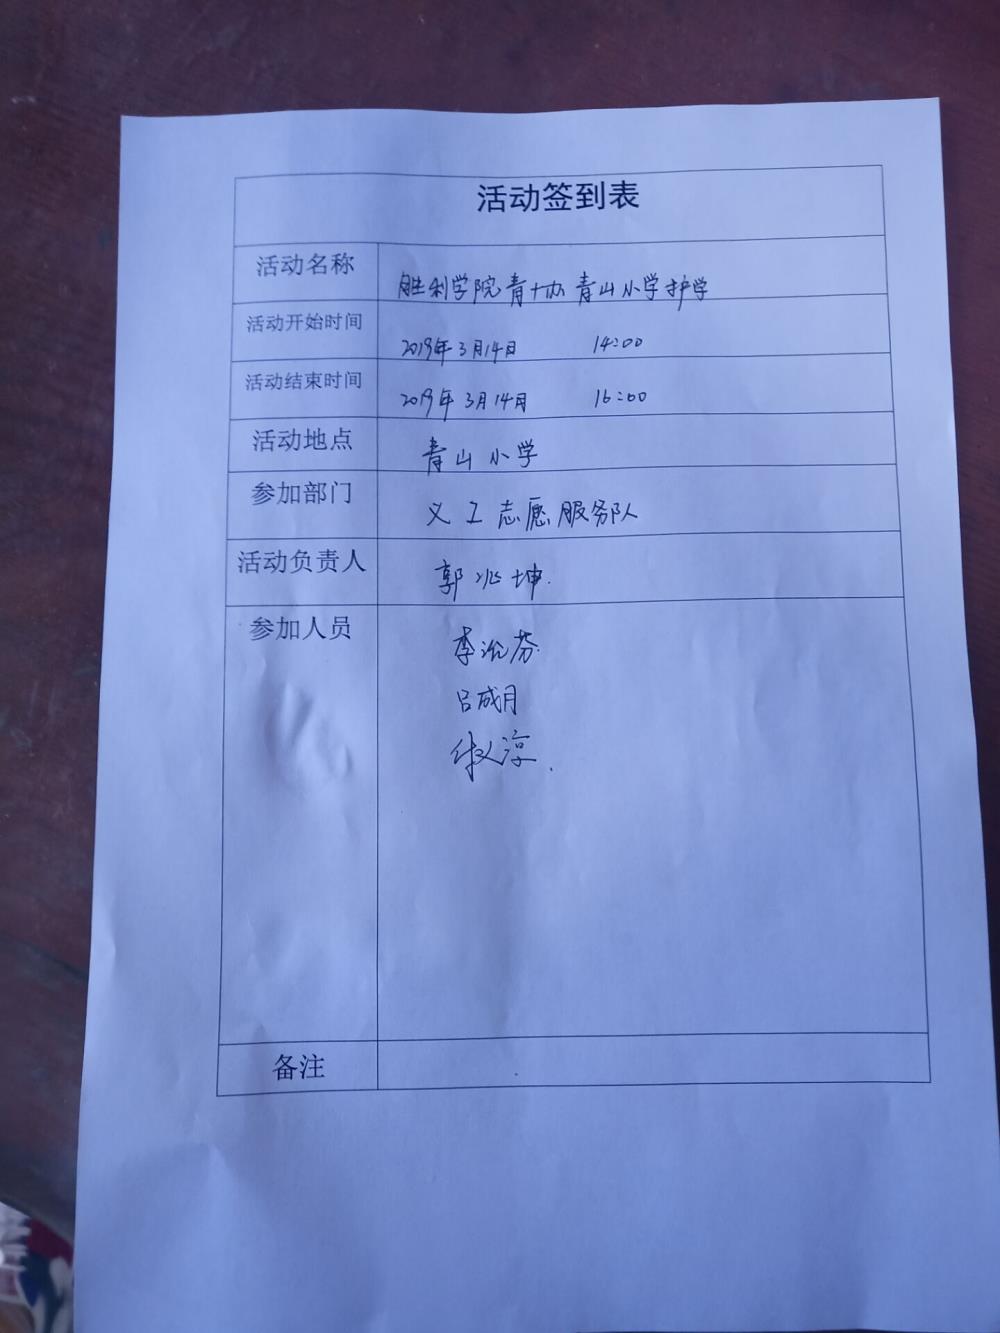 活动签到表
活动名称 胜利学院青协 青山小学护学
活动开始时间 2019年3月14日 14:00
活动结束时间 2019年3月14日 16:00
活动地点 青山小学
参加部门 义工志愿服务队
活动负责人 郭兆坤.
参加人员 李沁芬
吕成月
淳.
备注